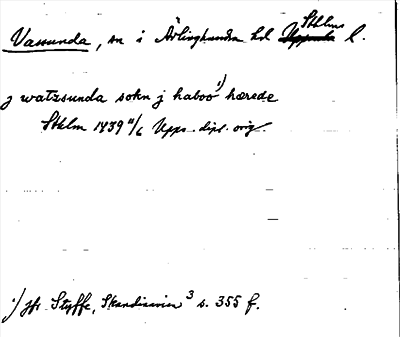 Sthlms
Vassunda, sn i Ärlinghundra hd Uppsala l.
j watzsunda sokn j haboo 1) hærede
Sthlm 1439 11/6 Upps. dipl. orig.
1) jfr Styffe, Skandinavien 3 s. 355 f.